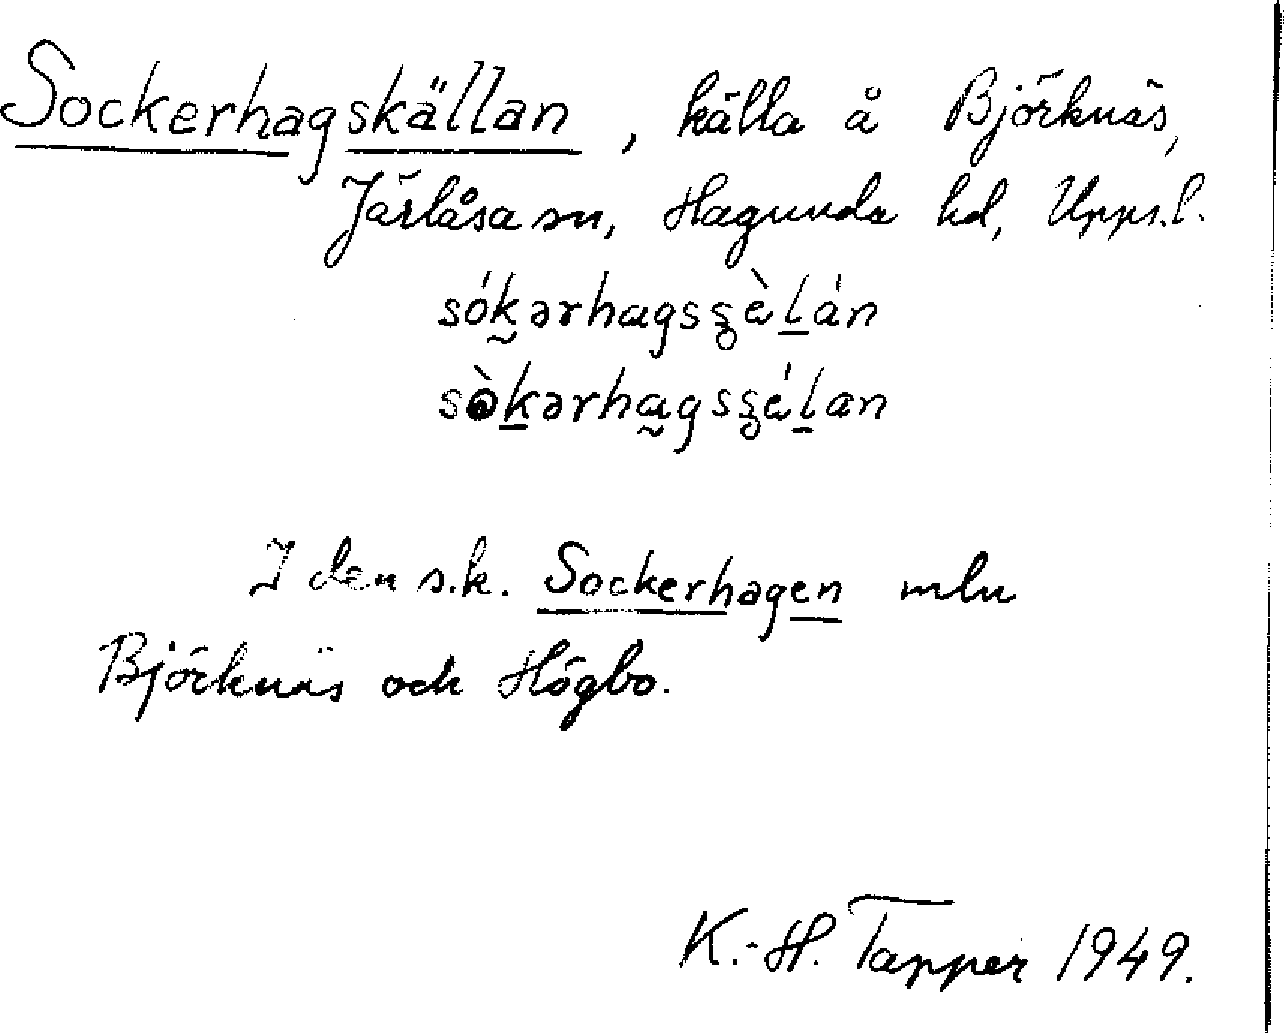 Sockerhagskällan, källa å Björknäs,
Järlåsa sn, Hagunda hd, Upps.l.
sók̰ərhagsʂèl̲án
sòk̲ərha̰gsʂél̲an
I den s.k. Sockerhagen mlu
Björknäs och Högbo.
K.-H. Tapper 1949.